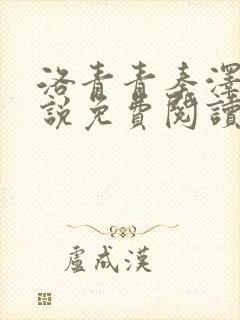 洛青青秦澤
說免費閱讀
盧成漢